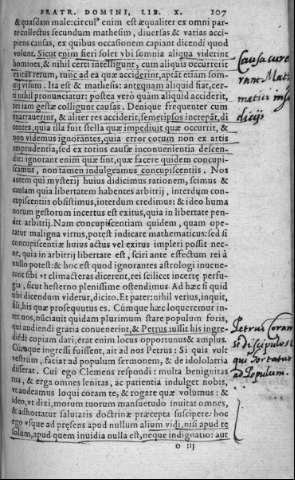 FRATR. DOMINI, LIB. X. 107
& quasi male: circul⁹ enim est æqualiter ex omni par-
te collectus secundum mathesim, diuersas & varias acci-
piens causas, ex quibus occasionem capiant dicendi quod
volunt. Sicut enim fieri solet vbi somnia aliqua viderint
homines, & nihil certi intelligunt, cum aliquis occurrerit
rei euentum, tunc ad ea quæ acciderint, aptāt etiam som-
nij visum. Ita est & mathesis: antequam aliquid fiat, cer-
tum nihil pronunciatur: postea verò quam aliquid acciderit,
rei iam gestæ colligunt causas. Denique frequenter cum
narrauerint, & aliter res acciderit, semetipsos increpāt, di-
centes, quia illa fuit stella quæ impediuit quæ occurrit, &
non vidimus: ignorantes, quia error eorum non ex artis
imprudentia, sed ex totius causæ inconuenientia descen-
dit: ignorant enim quæ sint, quæ facere quidem concupi-
scamus, non tamen indulgeamus concupiscentiis. Nos
autem qui mysterij huius didicimus rationem, scimus &
causam quia libertatem habentes arbitrij, interdum con-
cupiscentiis obsistimus, interdum credimus: & ideo huma
norum gestorum incertus est exitus, quia in libertate pen-
det arbitrij. Nam concupiscentiam quidem, quam ope-
ratur maligna virtus, potest indicare mathematicus: sed si
concupiscentiæ huius actus vel exitus impleri possit nec-
ne, quia in arbitrij libertate est, sciri ante effectum rei à
nullo potest: & hoc est quod ignorantes astrologi inuene-
runt sibi vt climacteras dicerent, rei scilicet incertę perfu-
gia, sicut hesterno plenissime ostendimus. Ad hæc si quid
tibi dicendum videtur, dicito. Et pater: nihil verius, inquit,
fili, his quæ prosequutus es. Cúmque hæc loqueremur in-
ter nos, nūciauit quidam plurimum stare populum foris,
qui audiendi gratia conuenerint, & Petrus iussit his ingre-
diendi copiam dari, erat enim locus opportunus & amplus.
Cúmque ingressi fuissent, ait ad nos Petrus: Si quis vult
vestrûm, faciat ad populum sermonem, & de idololatria
disserat. Cui ego Clemens respondi: multa benignitas
tua, & erga omnes lenitas, ac patientia indulget nobis,
vt audeamus loqui coram te, & rogare quæ volumus: &
ideo, vt dixi, morum tuorum mansuetudo inuitat omnes,
& adhortatur salutaris doctrinæ præcepta suscipere: hoc
ego vsque ad præsens apud nullum alium vidi, nisi apud te
solum, apud quem inuidia nulla est, neque indignatio: aut
o iij
Causa cur
Mat-
Petrus coram
discipulos
populum.